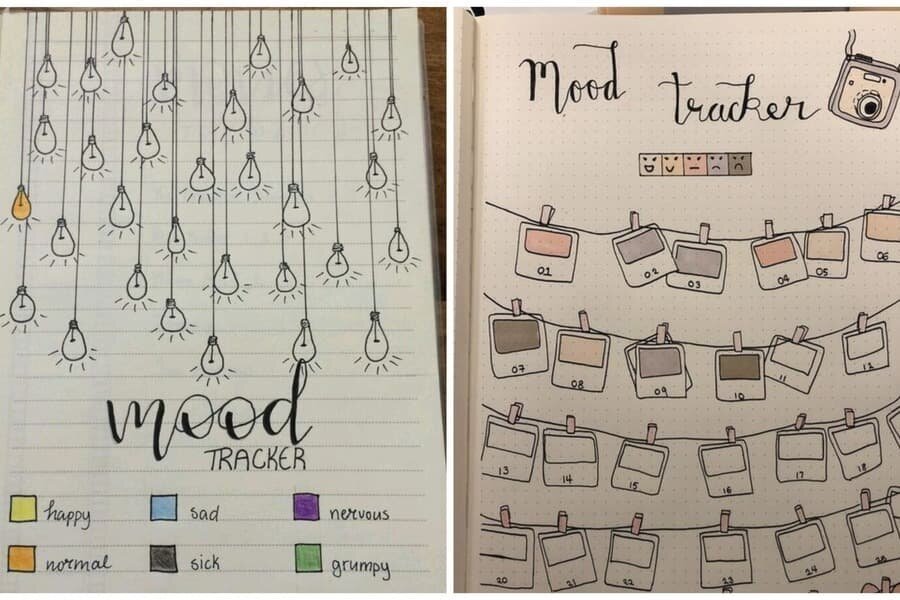 mood
TRACKER
happy
sad
nervous
normal
sick
grumpy
Mood tracker
01
02
03
04
05
06
07
08
09
10
11
12
13
14
15
16
17
18
20
21
22
23
24